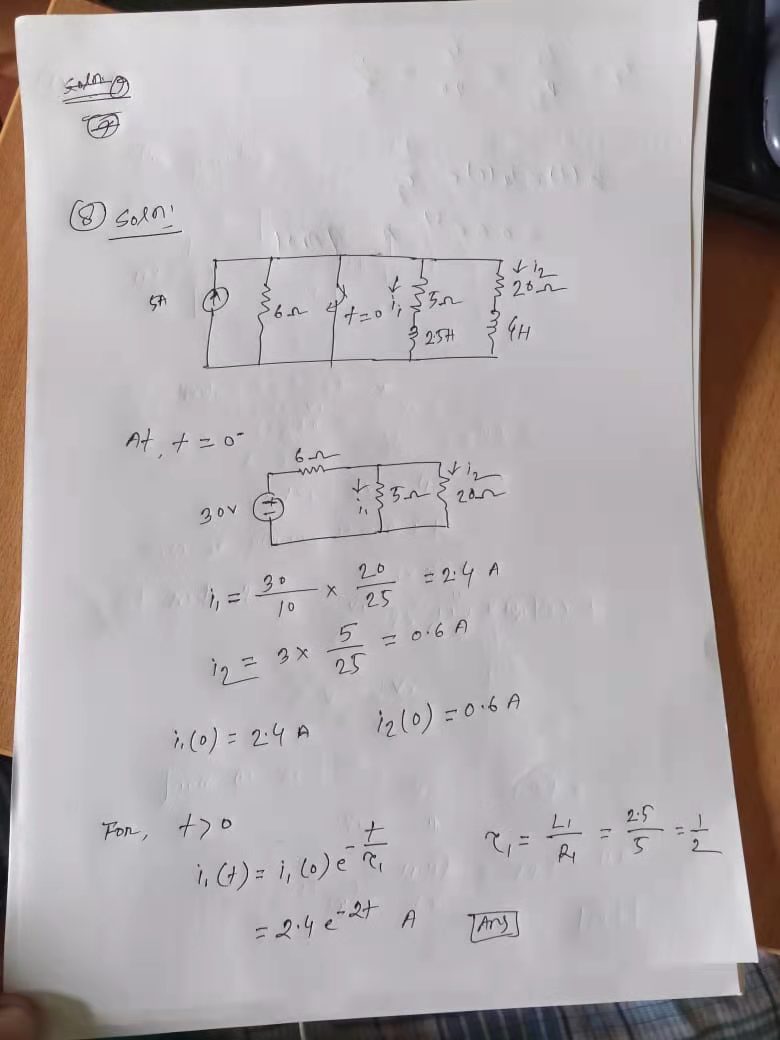 Soln:
7
8 Soln:
5A 6Ω t=0 i₁ 5Ω 2.5H ↓ i₂ 20Ω 4H
At, t = 0⁻
30V 6Ω i₁ 5Ω ↓ i₂ 20Ω
i₁ = 30/10 × 20/25 = 2.4 A
i₂ = 3 × 5/25 = 0.6 A
i₁(0) = 2.4 A i₂(0) = 0.6 A
For, t>0
i₁(t) = i₁(0) e^(-t/τ₁) τ₁ = L₁/R₁ = 2.5/5 = 1/2
= 2.4 e^(-2t) A Ans